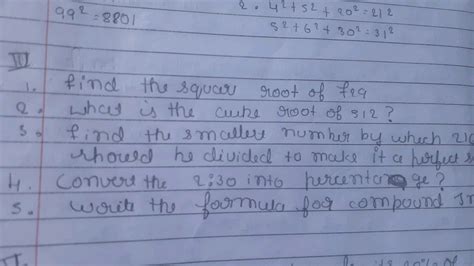 99² = 8801
2. 4² + 5² + 20² = 21²
5² + 6² + 30² = 31²
III
1. find the squar root of 729
2. what is the cube root of 512?
3. find the smallest number by which 21
should be divided to make it a perfect s
4. Convert the 2:30 into percentage?
5. Write the formula for compound In